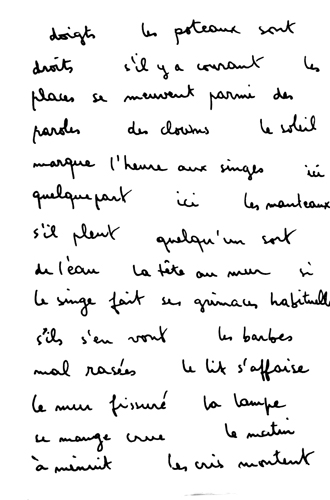 doigts les poteaux sont
droits s'il y a courant les
places se meuvent parmi des
paroles des clowns le soleil
marque l'heure aux singes ici
quelque part ici les manteaux
s'il pleut quelqu'un sort
de l'eau la tête au mur si
le singe fait ses grimaces habituelle
s'ils s'en vont les barbes
mal rasées le lit s'affaise
le mur fissuré la lampe
se mange crue le matin
à les cris montent